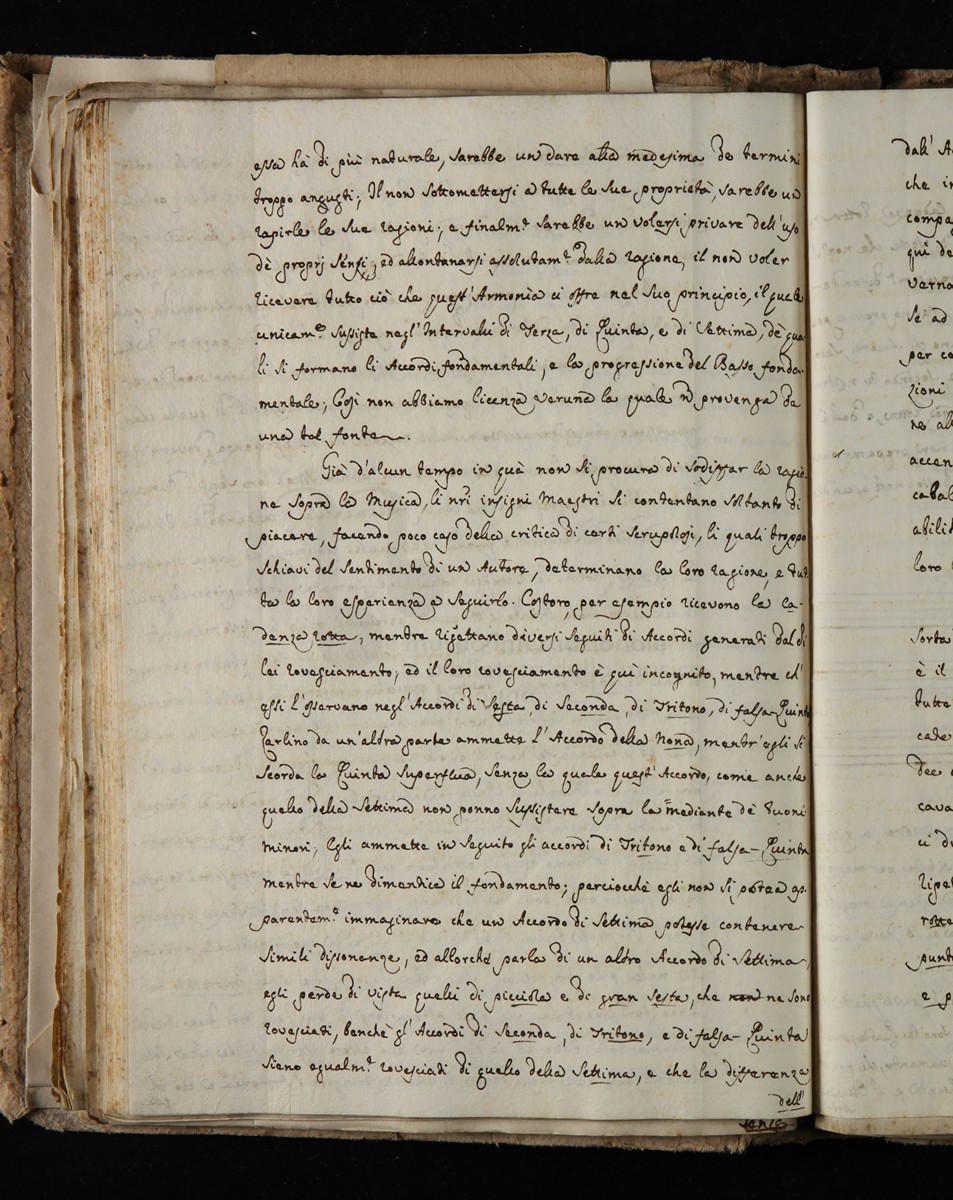 essa hà di più naturale, sarebbe un dare alla medesima de termini
troppo angusti; Il non sottomettersi a tutte le sue proprietà, sarebbe un
rapirle le sue ragioni; e finalm.te sarebbe un volersi privare dell'uso
dè proprj sensi, ed allontanarsi assolutam.te dalla ragione, il non voler
ricevere tutto ciò che quest'Armonia ci offre nel suo principio, il quale
unicam.te sussiste negl'Intervalli di Terza, di Quinta, e di Settima, dè qua
li si formano li Accordi fondamentali, e la progressione del Basso fonda-
mentale; Così non abbiamo licenza veruna la quale ñ provenga da
una tal fonte.
Già d'alcun tempo in quà non si procura di sodisfar la ragio
ne sopra la Musica, li nri insigni Maestri si contentano soltanto di
piacere, facendo poco caso della critica di certi scrupolosi, li quali troppo
schiavi del sentimento di un Autore, determinano la loro ragione, e tut
ta la loro esperienza a seguirlo. Costoro, per esempio ricevono la ca-
denza rotta, mentre rigettano diversi seguiti di Accordi generati dal di
lei rovesciamento; ed il loro rovesciamento è quì incognito, mentre ch'
essi l'osservano negl'Accordi di Sesta, di Seconda, di Tritono, di falsa-Quinta
Zarlino da un'altra parte ammette l'Accordo della Nona, mentr'egli si
scorda la Quinta superflua, senza la quale quest'Accordo, come anche
quello della Settima non ponno sussistere sopra la mediante dè Tuoni
minori; Egli ammette in seguito gli accordi di Tritono e di falsa-Quinta
mentre se ne dimentica il fondamento; perciocchè egli non si potea ap-
parentem.te immaginare che un Accordo di Settima potesse contenere
simili dissonanze, ed allorchè parla di un altro Accordo di Settima,
egli perde di vista quelli di picciola e di gran Sesta, che non ne sono
rovesciati, benchè gl'Accordi di Seconda, di Tritono, e di falsa-Quinta
sieno egualm.te rovesciati di quello della Settima, e che la differenza
dell'
dall' A
che in
compa
quì de
verno
se ad
per co
zioni
ne al
accen
cabal
abilit
loro
sorta
è il
tutte
cade
dee
cava
ci d
ripet
rotte
punt
e p